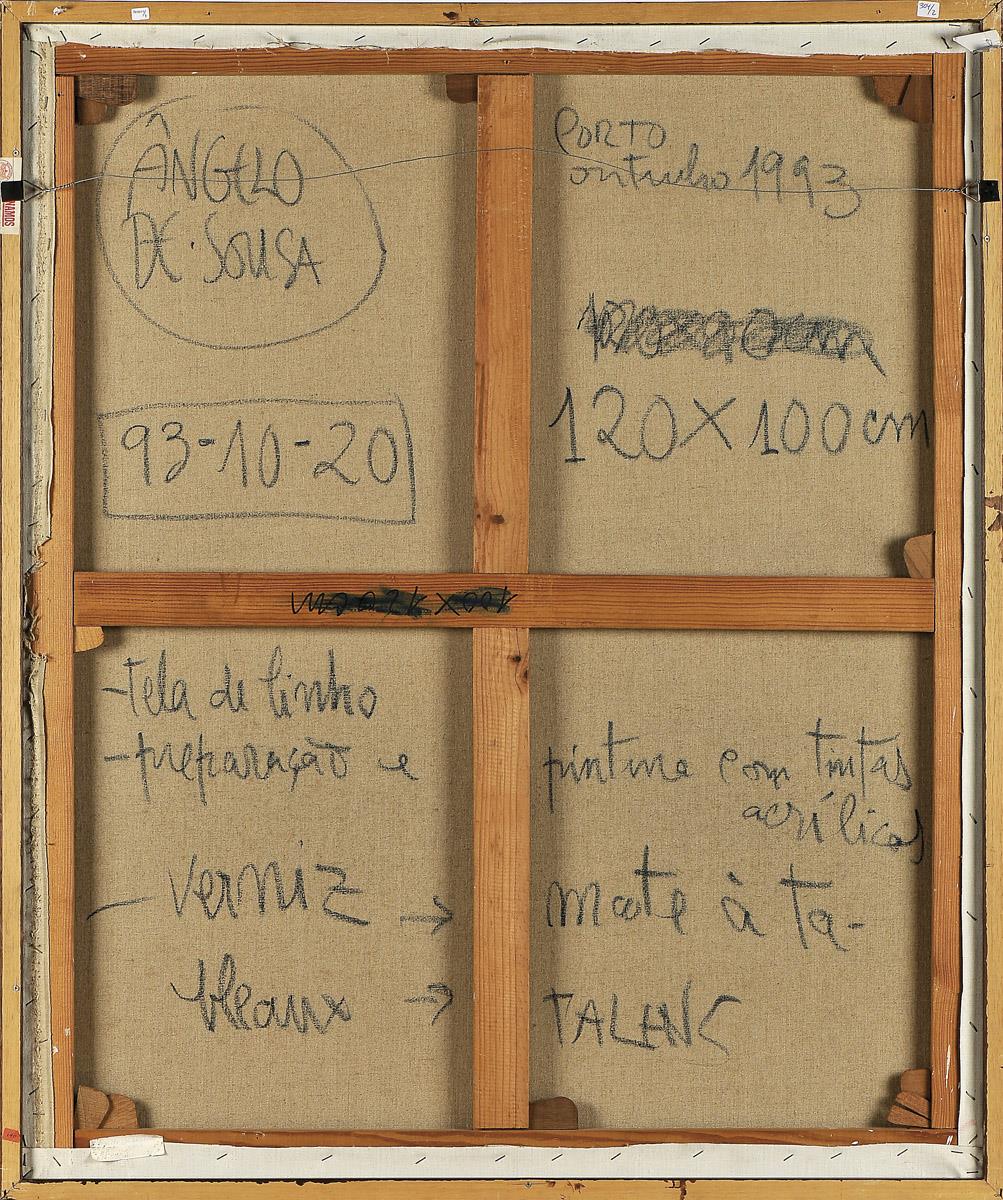 ÂNGELO
DE SOUSA
93-10-20
PORTO
outubro 1993
120X100cm
100X120cm
-tela de linho
-preparação e pintura com tintas
acrílicas
- Verniz → mate à ta-
bleaux → TALENS
304/2